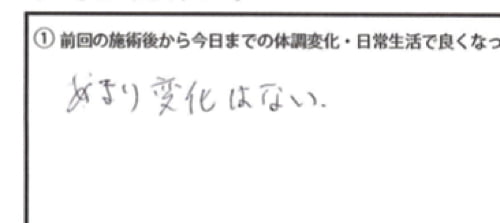 ① 前回の施術後から今日までの体調変化・日常生活で良くなっ
あまり変化はない.